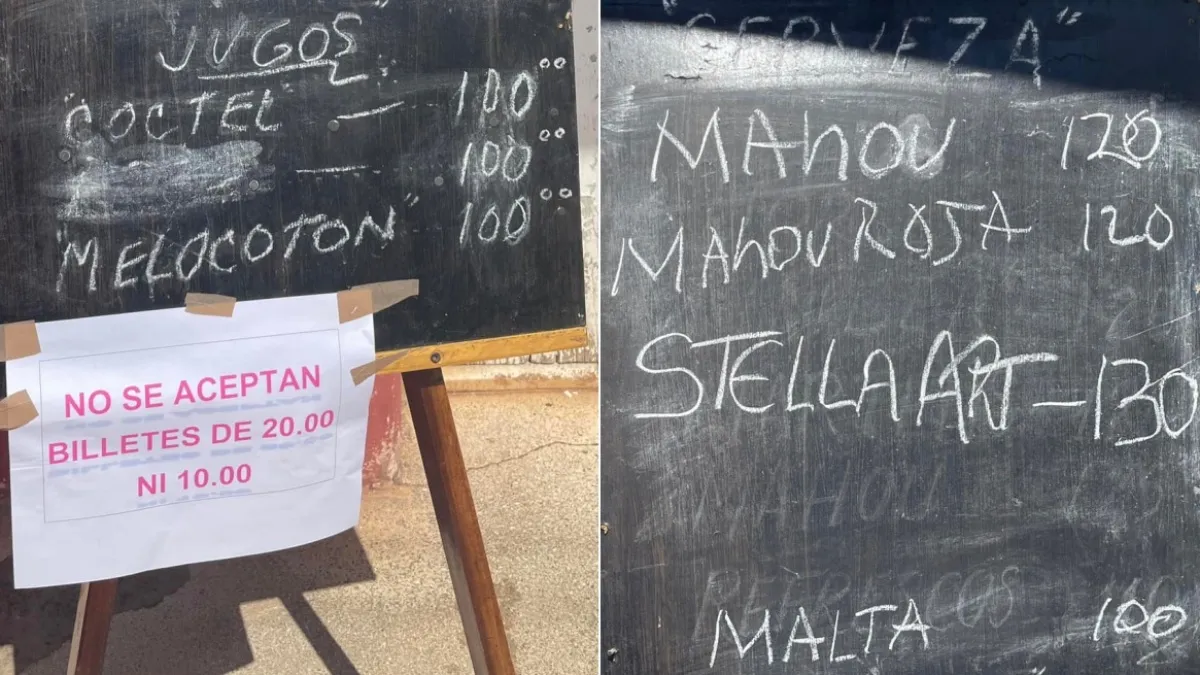 "JUGOS"
"COCTEL" — 100 °°
— 100 °°
"MELOCOTON" 100 °°
NO SE ACEPTAN
BILLETES DE 20.00
NI 10.00
"CERVEZA"
MAHOU 120
MAHOU ROJA 120
STELLA ART — 130
MAHOU
REFRESCOS
MALTA 100